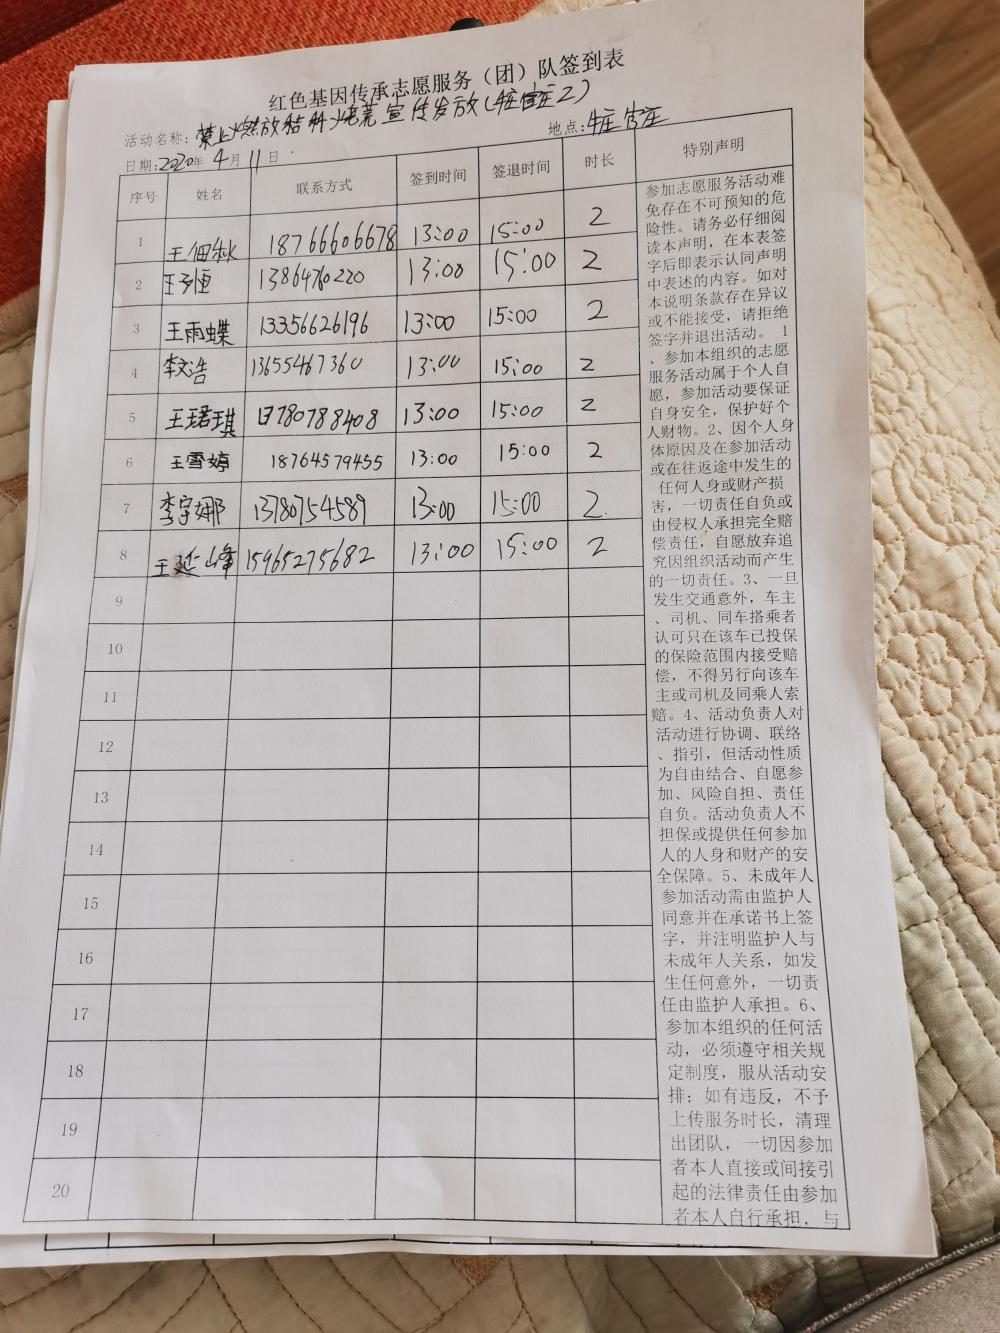 红色基因传承志愿服务（团）队签到表
活动名称：禁止燃放秸秆烧荒宣传发放
日期：2020年4月11日 地点：
序号 姓名 联系方式 签到时间 签退时间 时长 特别声明
1 王佃秋 18766606678 13:00 15:00 2
2 13:00 15:00 2
3 王雨蝶 13356626196 13:00 15:00 2
4 李文浩 13655467360 13:00 15:00 2
5 王珺琪 13:00 15:00 2
6 王雪婷 18764579455 13:00 15:00 2
7 李宇娜 13780754589 13:00 15:00 2
8 王延峰 15965275682 13:00 15:00 2
9
10
11
12
13
14
15
16
17
18
19
20
参加志愿服务活动难
免存在不可预知的危
险性。请务必仔细阅
读本声明，在本表签
字后即表示认同声明
中表述的内容。如对
本说明条款存在异议
或不能接受，请拒绝
签字并退出活动。 1
、参加本组织的志愿
服务活动属于个人自
愿，参加活动要保证
自身安全，保护好个
人财物。2、因个人身
体原因及在参加活动
或在往返途中发生的
任何人身或财产损
害，一切责任自负或
由侵权人承担完全赔
偿责任，自愿放弃追
究因组织活动而产生
的一切责任。3、一旦
发生交通意外，车主
、司机、同车搭乘者
认可只在该车已投保
的保险范围内接受赔
偿，不得另行向该车
主或司机及同乘人索
赔。4、活动负责人对
活动进行协调、联络
、指引，但活动性质
为自由结合、自愿参
加、风险自担、责任
自负。活动负责人不
担保或提供任何参加
人的人身和财产的安
全保障。5、未成年人
参加活动需由监护人
同意并在承诺书上签
字，并注明监护人与
未成年人关系，如发
生任何意外，一切责
任由监护人承担。6、
参加本组织的任何活
动，必须遵守相关规
定制度，服从活动安
排；如有违反，不予
上传服务时长，清理
出团队，一切因参加
者本人直接或间接引
起的法律责任由参加
者本人自行承担，与